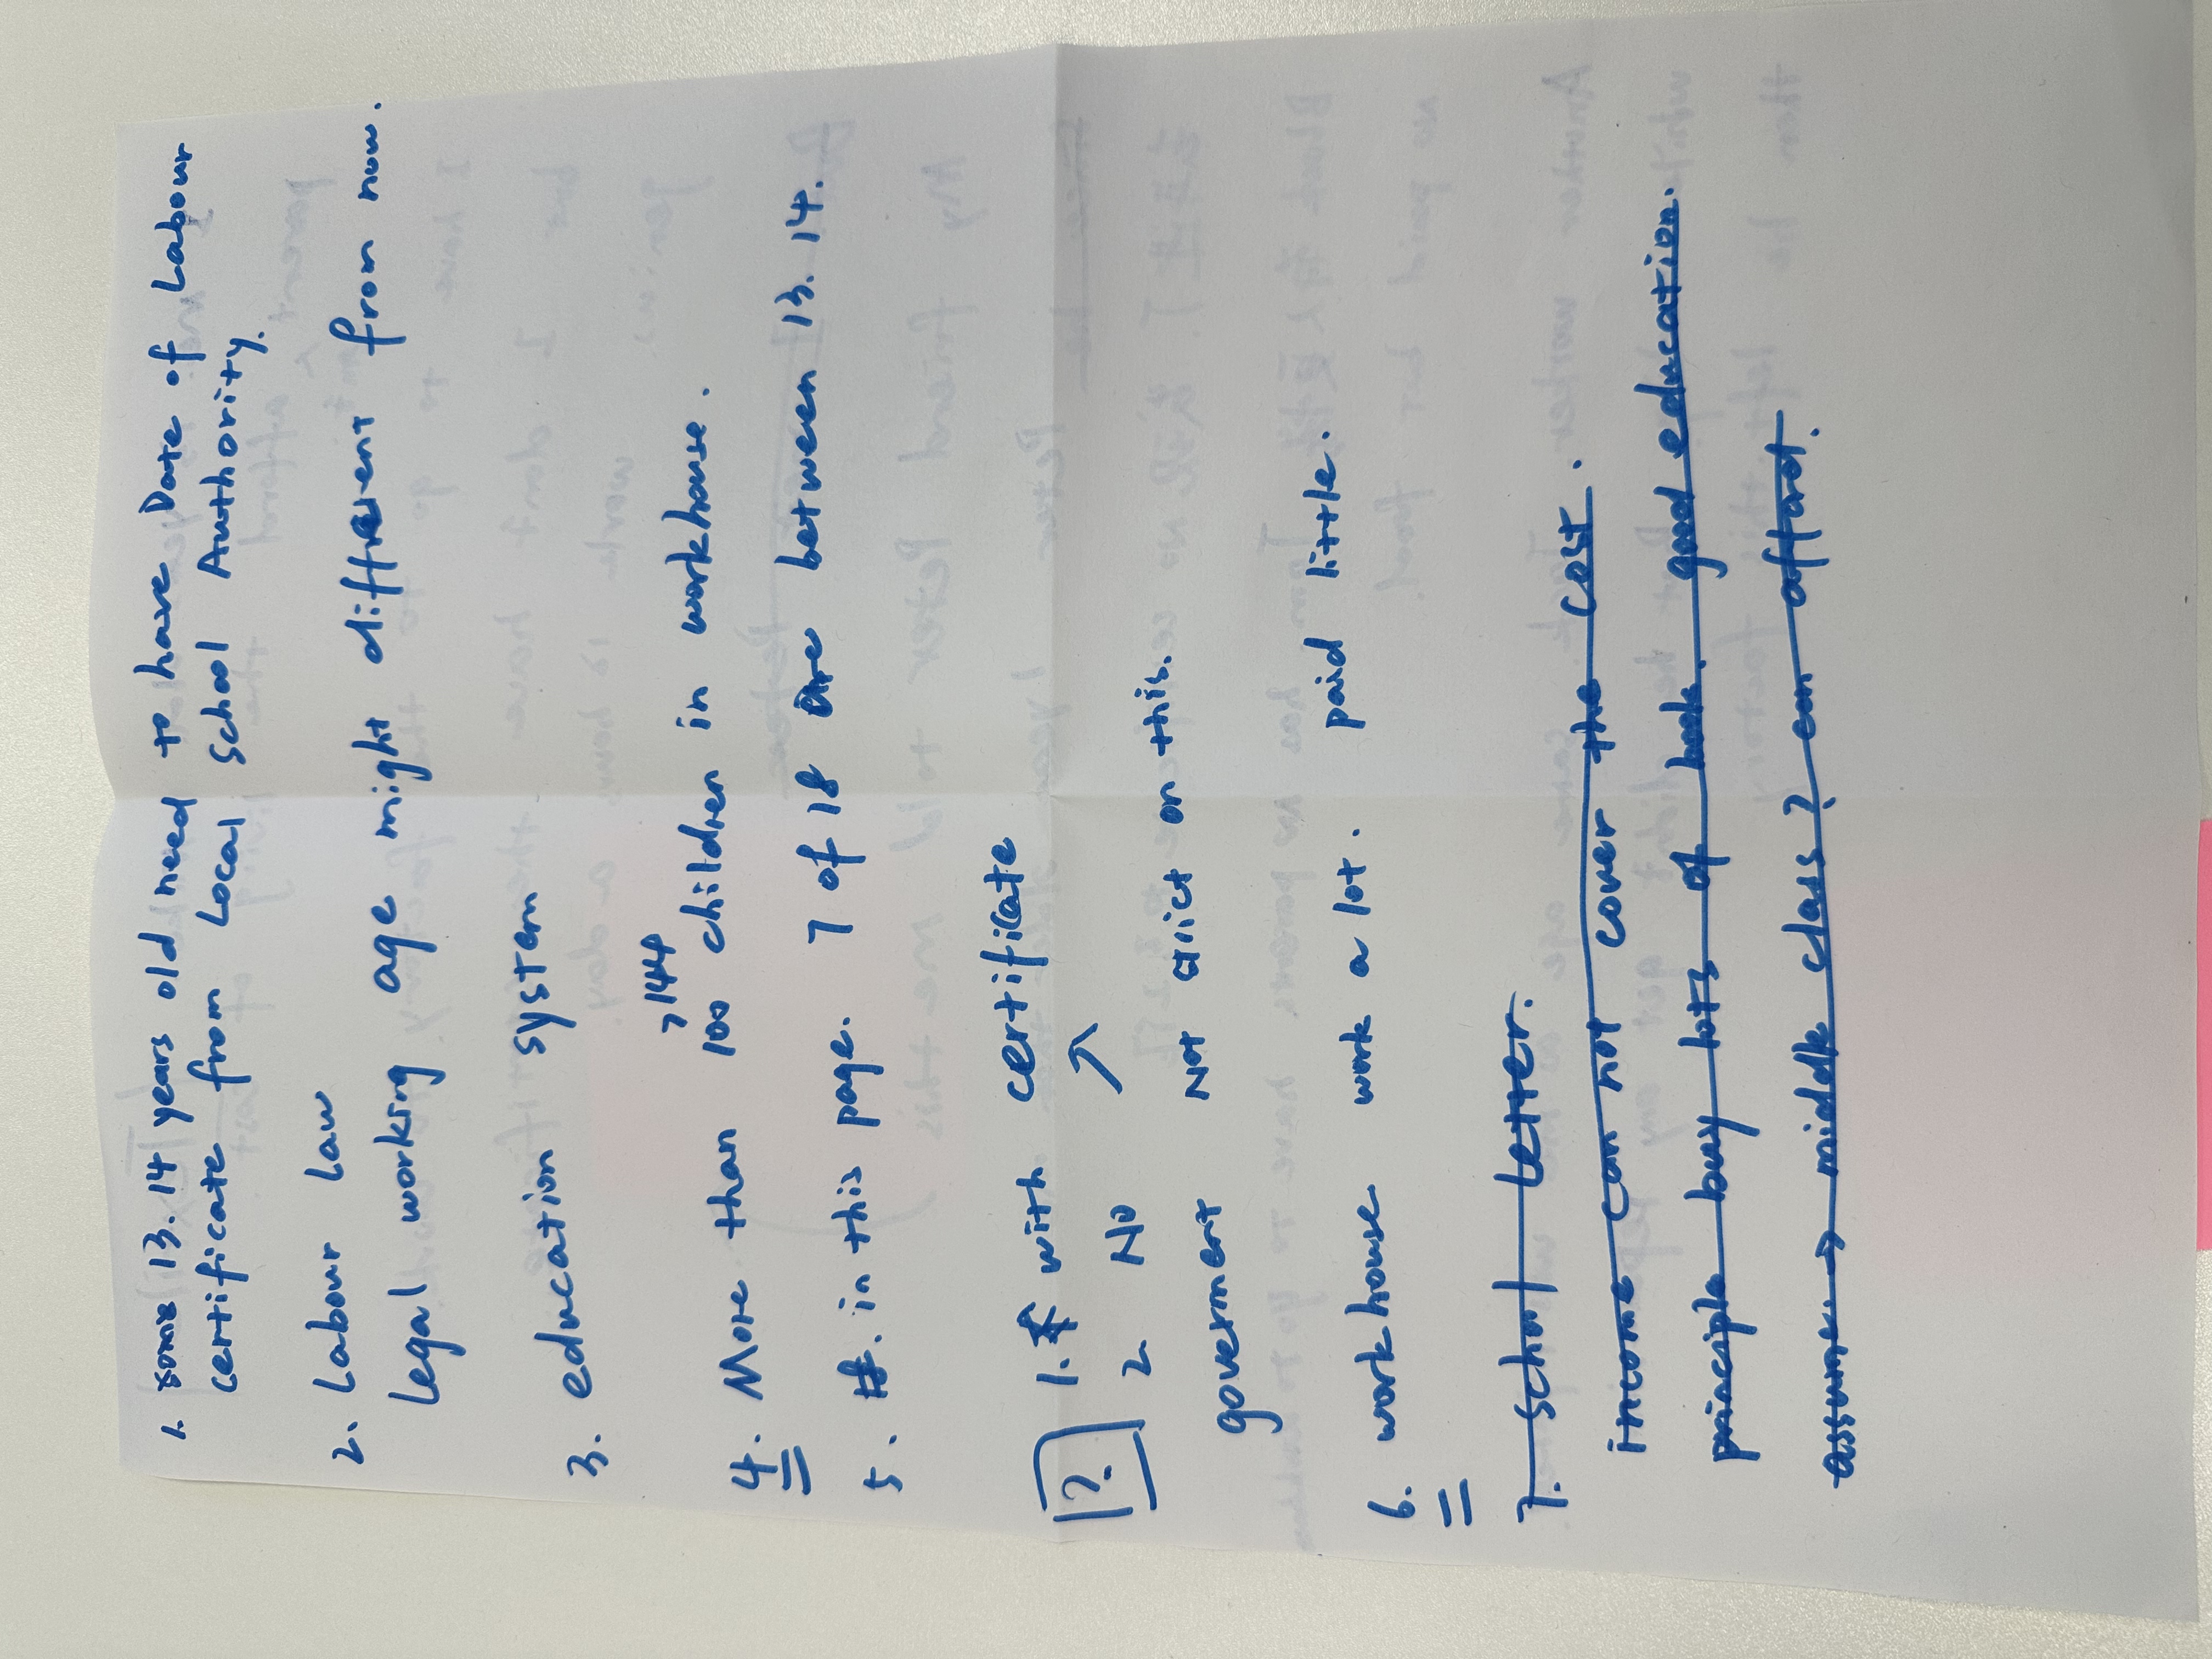 1. some 13.14 years old need to have Date of Labour
certificate from Local School Authority.
2. Labour Law
Legal working age might different from now.
3. education system
>144
4. More than 100 children in workhouse.
5. #. in this page. 7 of 18 are between 13.14.
?. 1. with certificate
2. No ↗
government Not strict on this.
6. workhouse work a lot. paid little.
7. School Letter.
income can not cover the cost.
principle buy lots of book. good education.
assume → middle class? can affort.